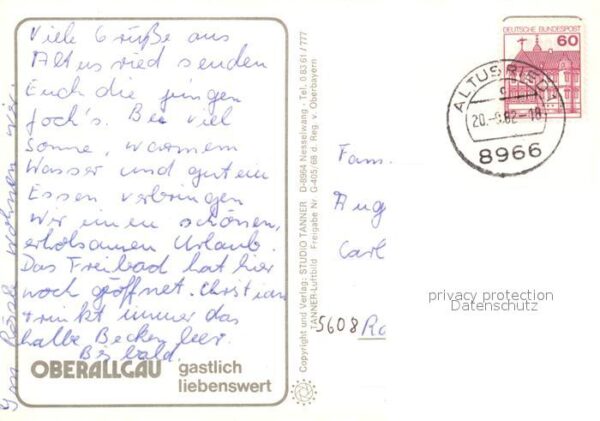 Viele Grüße aus
Altusried senden
Euch die jungen
Joch's. Bei viel
Sonne, warmem
Wasser und gutem
Essen verbringen
wir einen schönen,
erholsamen Urlaub.
Das Freibad hat hier
noch geöffnet. Christian
trinkt immer das
halbe Becken leer.
Bis bald.
wohnen wir.
OBERALLGÄU gastlich
liebenswert
Copyright und Verlag: STUDIO TANNER D-8964 Nesselwang - Tel. 0 83 61 / 777
TANNER-Luftbild Freigabe Nr. G-405/68 d. Reg. v. Oberbayern
DEUTSCHE BUNDESPOST
60
ALTUSRIED 1
d
82-18
8966
Fam.
Aug
Carl
5608 Ra
privacy protection
Datenschutz